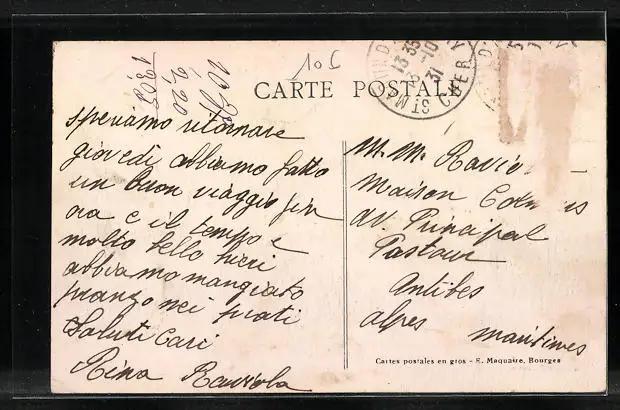 10 C
CARTE POSTALE
ST AMAND
13 35
31
CHER
speriamo ritornare
giovedi abbiamo fatto
un buon viaggio fin
ora e il tempo è
molto bello hieri
abbiamo mangiato
pranzo nei prati
Saluti Cari
Rina Raviola
M. M. Ravio
Maison
av. Principal
Pasteur
Antibes
alpes maritimes
Cartes postales en gros - E. Maquaire, Bourges